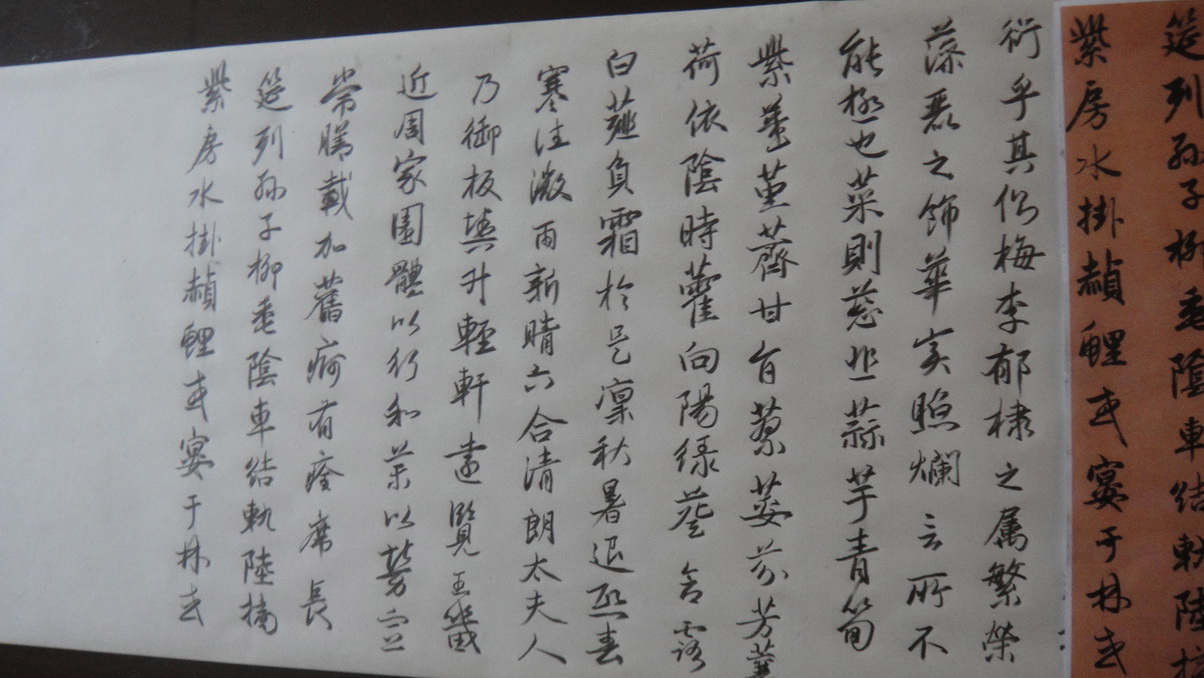 筵列孫子柳垂陰車結軌陸摘
紫房水掛赬鯉或宴于林或
衍乎其側梅李郁棣之属繁榮
藻麗之飾華実照爛言所不
能極也菜則蔥韭蒜芋青筍
紫薑堇薺甘旨蓼荽芬芳蘘
荷依陰時藿向陽绿葵含露
白薤負霜於是凜秋暑退熙春
寒往微雨新晴六合清朗太夫人
乃御板輿升輕軒遠覽王畿
近周家園體以行和藥以勞宣
常膳載加舊痾有痊席長
筵列孫子柳垂陰車結軌陸摘
紫房水掛赬鯉或宴于林或